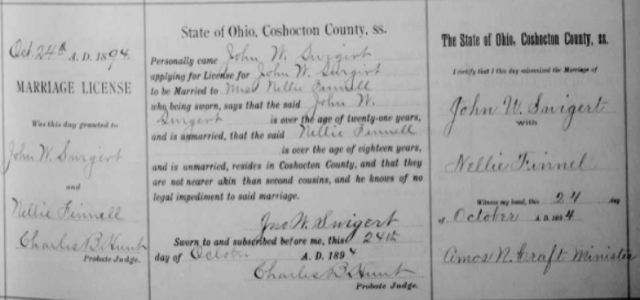 Oct. 24th A. D. 1894.
MARRIAGE LICENSE
Was this day granted to
John W. Swigert
and
Nellie Finnell
Charles B. Hunt
Probate Judge.
State of Ohio, Coshocton County, ss.
Personally came John W. Swigert
applying for License for John W. Swigert
to be Married to Miss Nellie Finnell
who being sworn, says that the said John W.
Swigert is over the age of twenty-one years,
and is unmarried, that the said Nellie Finnell
is over the age of eighteen years,
and is unmarried, resides in Coshocton County, and that they
are not nearer akin than second cousins, and he knows of no
legal impediment to said marriage.
Jno W. Swigert
Sworn to and subscribed before me, this 24th
day of October A. D. 1894
Charles B. Hunt
Probate Judge.
The State of Ohio, Coshocton County, ss.
I certify that I this day solemnized the Marriage of
John W. Swigert
with
Nellie Finnel
Witness my hand, this 24 day
of October A. D. 1894
Amos N. Craft Minister